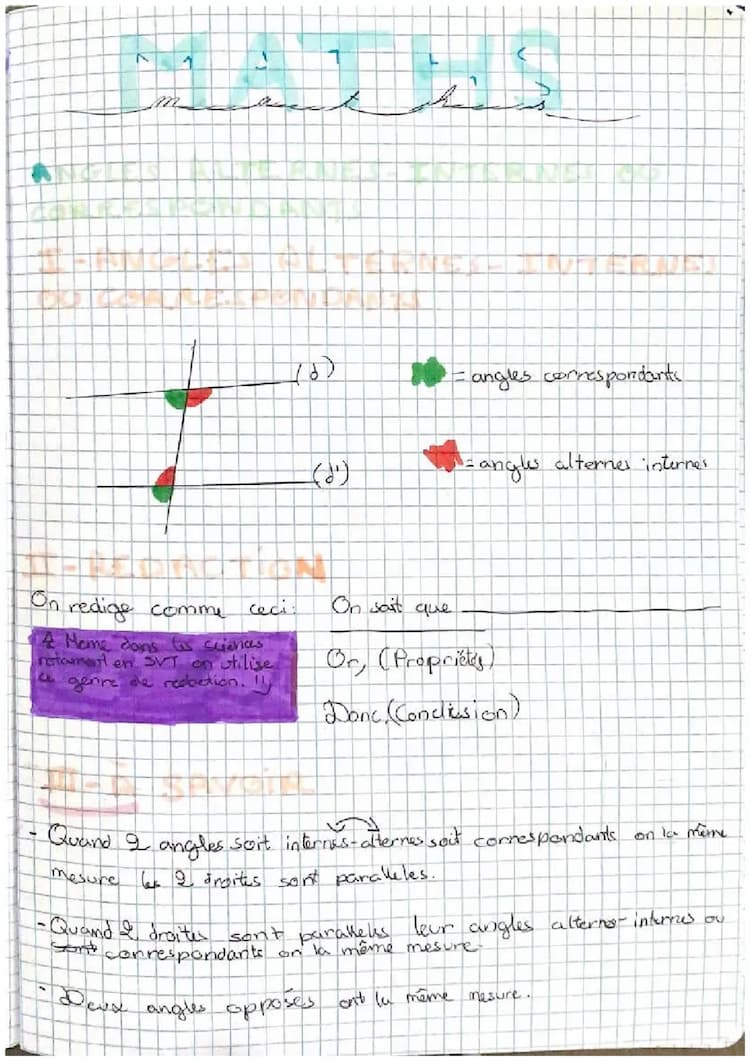 MATHS
mathes
ANGLES ALTERNES-INTERNES OU
CORRESPONDANTS
I-ANGLES ALTERNES-INTERNES
OU CORRESPONDANTS
(d)
= angles correspondants
(d')
= angles alternes internes
II-REDACTION
On redige comme ceci: On sait que
Meme dans les sciences
notamment en SVT on utilise
ce genre de redaction. !!
Or, (Propriétés)
Donc, (Conclusion)
III-À SAVOIR
- Quand 2 angles soit internes-alternes soit correspondants on la même
mesure les 2 droites sont paralleles.
- Quand 2 droites sont paralleles leur angles alterne-internes ou
sont correspondants on la même mesure.
- Deux angles opposés ont la même mesure.